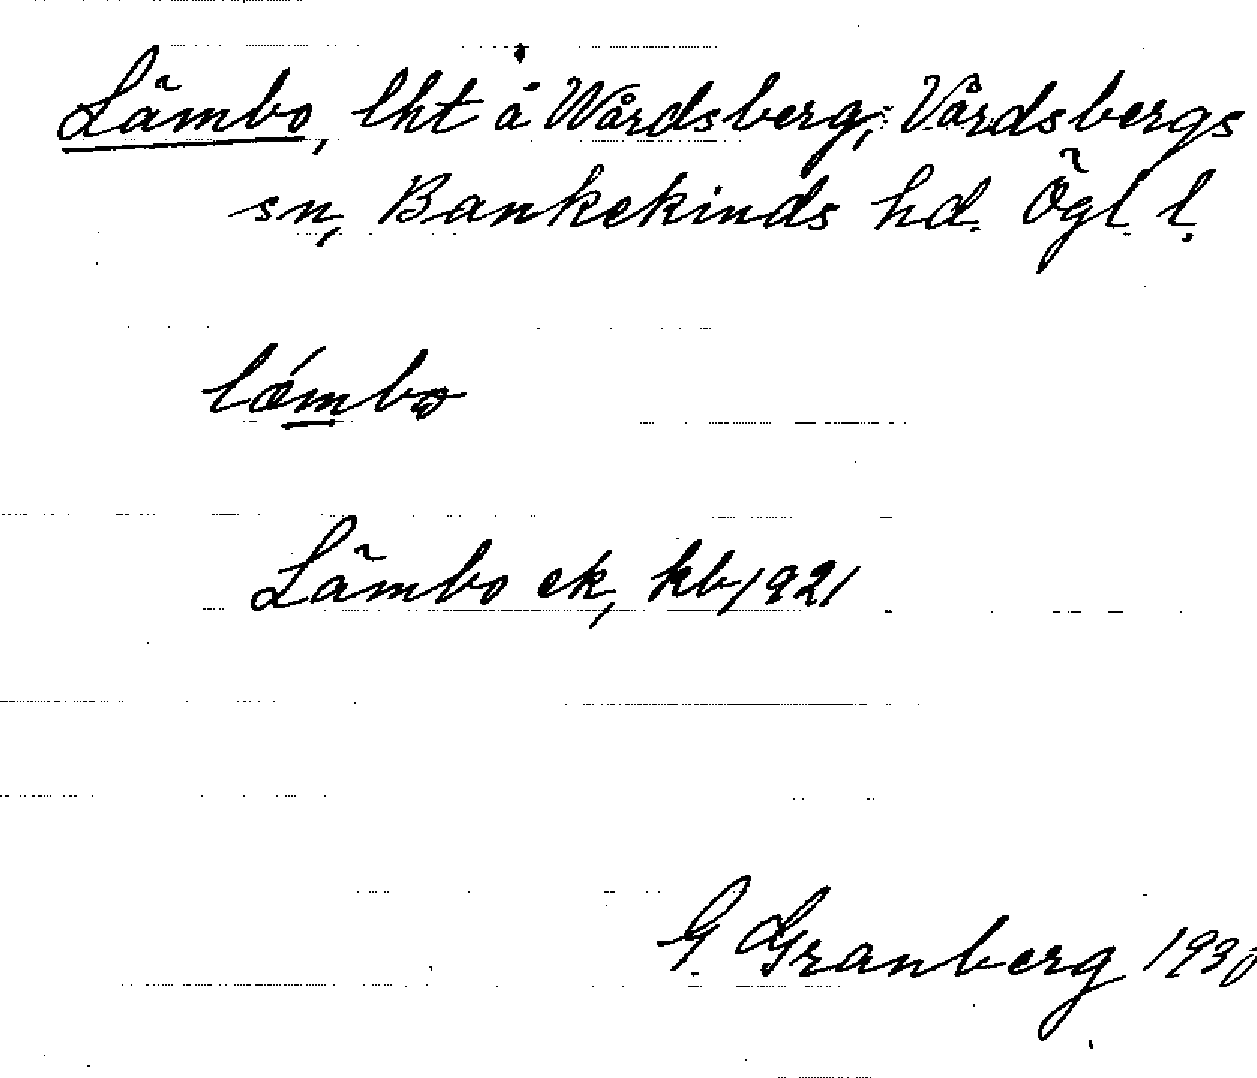 Lämbo, lht å Wårdsberg, Vårdsbergs
sn, Bankekinds hd. Ögl. l.
lǽmbo
Lämbo ek, kb 1921
G. Granberg 1930